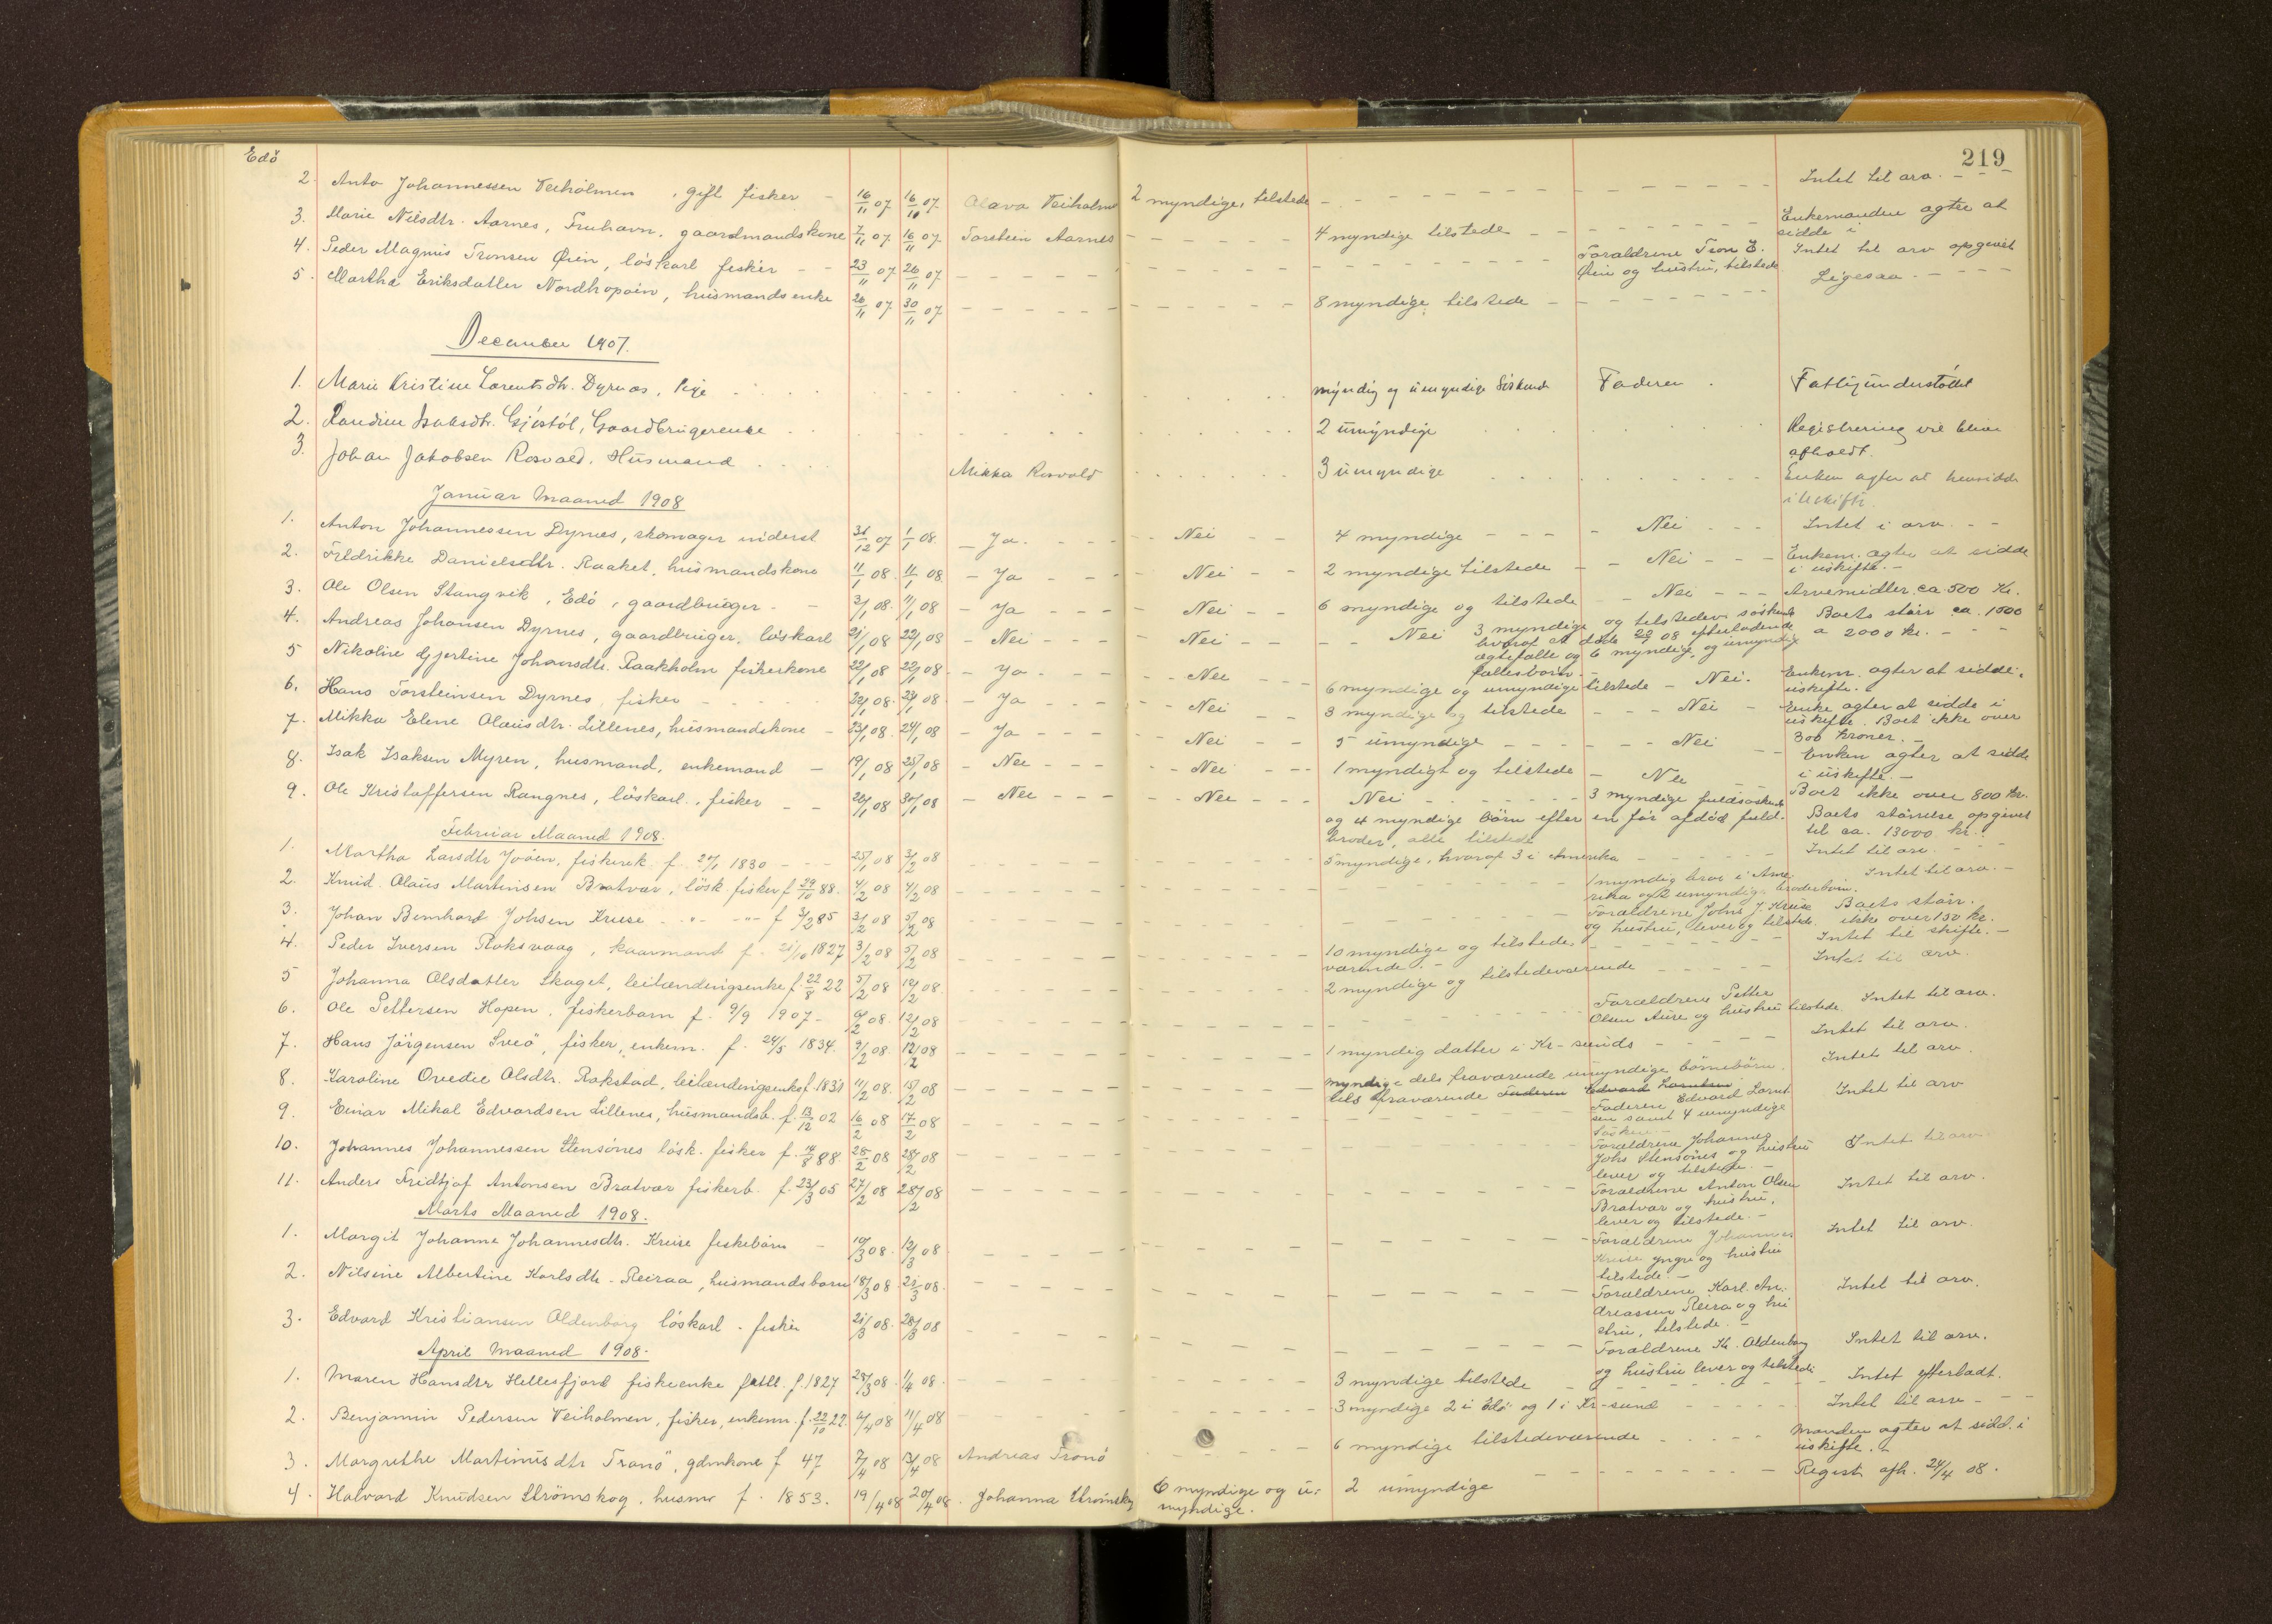 Edö
219
2. Anto Johannessen Veiholmen, gift fisker - 16/11 07 16/10 07. Olava Veiholm 2 myndige, tilstede - - - Intet til arv. - - -
3. Marie Nilsdtr. Aarnes, Fruhavn, gaardmandskone 7/11 07 16/11 07. Torstein Aarnes - - - 4 myndige tilstede - - - Enkemanden agter at
sidde i
4. Peder Magnus Tronsen Øien, löskarl fisker - - 23/11 07 26/11 07. - - - Foraldrene Tron E. Intet til arv opgevet
Øien og hustru, tilstede
5. Martha Eriksdatter Nordhopøin, husmandsenke 26/11 07 30/11 07. - - - 8 myndige tilstede - - - Ligesaa. - - - -
December 1907.
1. Marie Kristine Larentsdtr. Dyrnes, Pige . . . myndig og umyndige Söskende Faderen . Fattigunderstöttet
2. Randine Isaksdtr. Gjöstöl, Gaardbrugerenke . . . 2 umyndige . . . Registrering vil blive
afholdt.
3. Johan Jakobsen Rosvold, Husmand . . . Mikka Rosvold . . . 3 umyndige . . . Enken agter at hensidde
i uskifte
Januar Maaned 1908
1. Anton Johannessen Dyrnes, skomager underst 31/12 07 1/1 08. - Ja. - - - Nei - - 4 myndige - - - Nei - - - Intet i arv. - -
2. Fredrikke Danielsdtr. Raaket, husmandskone 11/1 08. 11/1 08. - Ja - - - Nei - - 2 myndige tilstede - - Nei - - - Enkem. agter at sidde
i uskifte. -
3. Ole Olsen Stangvik, Edö, gaardbruger. - 3/1 08. 11/1 08 - Ja - - - Nei - - 6 myndige og tilstede - Nei - - - Arvemidler ca 500 Kr.
4. Andreas Johansen Dyrnes, gaardbruger, löskarl 21/1 08 22/1 08 - Nei - - - Nei - - - Nei 3 myndige og tilstedev. söskende Boets störr ca. 1500
hvoraf at döde 20/1 08 efterladende a 2000 kr. - - -
ægtefælle og 6 myndige, og umyndig
fællesbörn. -
5 Nikoline Gjertine Johansdtr. Raakholm fiskerkone 22/1 08 22/1 08 - Ja. - - - Nei - - - 6 myndige og umyndige tilstede - Nei. Enkem. agter at sidde i
uskifte. -
6. Hans Torsteinsen Dyrnes, fisker - - - 22/1 08. 23/1 08. - Ja - - - Nei - - 3 myndige og tilstede - - - Nei - Enke agter at sidde i
uskifte. Boet ikke over
300 kroner. -
7. Mikka Elene Olausdtr. Lillenes, husmandskone - 23/1 08. 24/1 08 - Ja - - - Nei - - 5 umyndige - - - - - Nei - - Enken agter at sidde
i uskifte. -
8. Isak Isaksen Myren, husmand, enkemand - 19/1 08 25/1 08 - Nei - - - Nei - - - 1 myndigt og tilstede - Nei - Boet ikke over 800 kr.
9. Ole Kristoffersen Rangnes, löskarl, fisker - - 20/1 08 30/1 08 - Nei - - - Nei - - - Nei - - - 3 myndige fuldsöskende Boets störrelse opgivet
og 4 myndige börn efter en för afdöd fuld- til ca. 13000 kr.
broder, alle tilstede
Februar Maaned 1908.
1. Martha Larsdtr , fiskerenk. f. 29/1 1830 - - - 25/1 08 3/2 08 - - - 5 myndige, hvoraf 3 i Amerika - - - Intet til arv.
2. Knud Olaus Martinsen Bratvær, lösk. fisker f 29/10 88. 4/2 08 4/2 08 - - - 1 myndig bror i Ame- Intet til arv. -
rika og 2 umyndige broderbörn.
3. Johan Bernhard Johsen Kruse - " - - " - f 3/2 85 3/2 08 5/2 08 - - - Foraldrene Johs J. Kruse Boets störr.
og hustru, lever og tilstede. ikke over 150 kr.
4. Peder Iversen Roksvaag, kaarmand f. 21/10 1827 3/2 08 5/2 08 - - - 10 myndige og tilstede- - - - Intet til skifte. -
værende. -
5 Johanna Olsdatter Skaget, leilændingsenke f. 22/8 22 5/2 08 12/2 08. - - - 2 myndige og tilstedeværende - - - Intet til arv.
6. Ole Pettersen Hopen, fiskerbarn f. 9/9 1907 - 9/2 08. 12/2 08 - - - Foraldrene Petter Intet til arv.
Olsen Aure og hustru tilstede
7. Hans Jörgensen Sveö, fisker, enkem. f. 24/5 1834. 9/2 08. 12/2 08 - - - 1 myndig datter i Kr-sunds - - - Intet til arv.
8. Karoline Ovedie Olsdtr. Rokstad, leilændingsenke f. 1831 11/2 08. 15/2 08 - - - myndige dels fraværende umyndige börnebörn. Intet til arv.
tils fraværende Faderen Edvard Larntsen
9. Einar Mikal Edvardsen Lillenes, husmandsb. f. 13/12 02 16/2 08 17/2 08 - - - Faderen Edvard Larnt- Intet til arv
sen samt 4 umyndige
Sösken. -
10. Johannes Johannessen Stensönes lösk. fisker f. 14/8 88 25/2 08 28/2 08 - - - Foraldrene Johannes Intet til arv
Johs Stensönes og hustru
lever og tilstede. -
11. Anders Fridtjof Antonsen Bratvær fiskerb. f. 23/3 05 27/2 08 28/2 08 - - - Foraldrene Anton Olsen Intet til arv.
Bratvær og hustru,
lever og tilstede. -
Marts Maaned 1908.
1. Margit Johanne Johannesdtr. Kruse fiskebarn - 10/3 08. 12/3 08 - - - Foraldrene Johannes Intet til arv.
Kruse yngre og hustru
tilstede. -
2. Nilsine Albertine Karlsdtr. Reiraa, husmandsbarn 18/3 08 21/3 08. - - - Foraldrene Karl An- Intet til arv.
dreassen Reira og hu
stru, tilstede. -
3. Edvard Kristiansen Oldenborg löskarl. fisker 21/3 08. 28/3 08 - - - Foraldrene Kr. Oldenborg Intet til arv.
og hustru lever og tilstede
April Maaned 1908.
1. Maren Hansdtr Hellesfjord fiskeenke fattl. f. 1827 28/3 08. 1/4 08. - - - 3 myndige tilstede - - - Intet efterladt.
2. Benjamin Pedersen Veiholmen, fisker, enkem. f. 22/10 22. 4/4 08 11/4 08 - - - 3 myndige 2 i Edö og 1 i Kr-sund - - - Intet til arv - - -
3. Margrethe Martinusdtr Tranö, gdmkone f 47 7/4 08 13/4 08 Andreas Tronö - - - 6 myndige tilstedeværende - - - Manden agter at sidd. i
uskifte. -
4. Halvard Knudsen Strömskog, husm f. 1853. 19/4 08 20/4 08. Johanna Strömskog 6 myndige og u- 2 umyndige - - - Regist. afh. 24/4 08.
myndige.